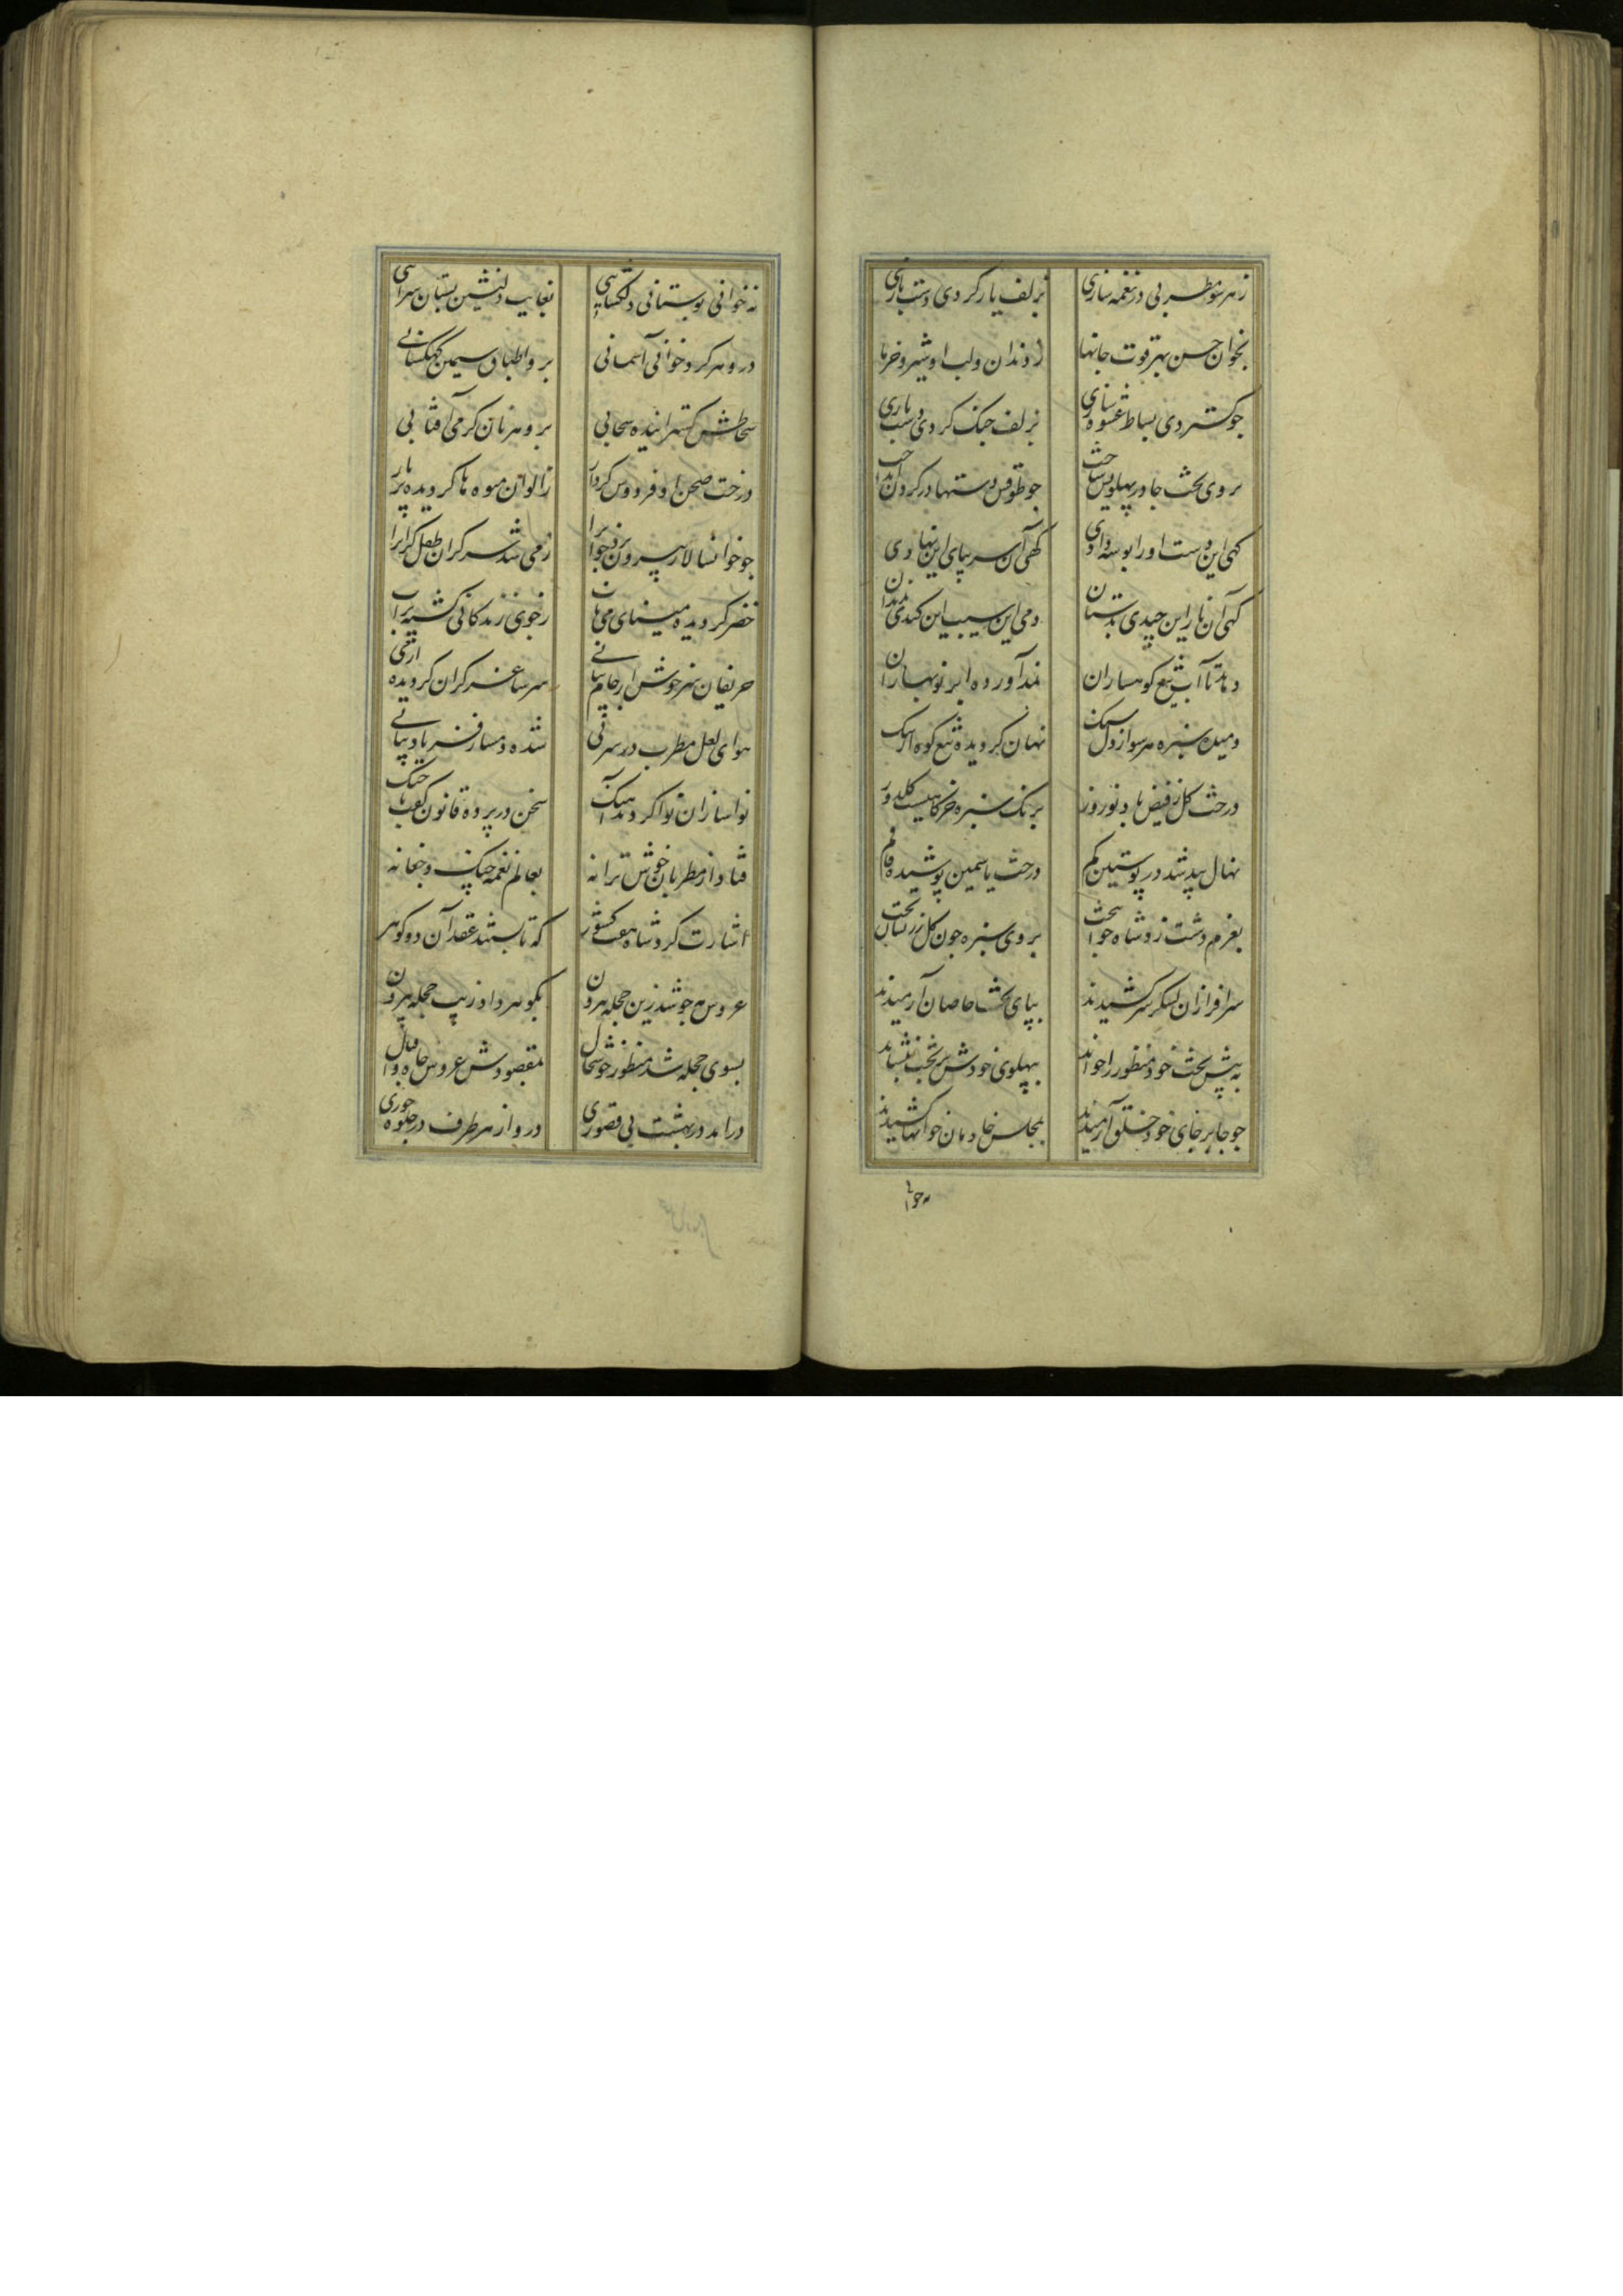 زهر سو مطربی در نغمه سازی بزلف یار کردی دست بازی
بخوان حسن بهتر قوت جانها ز دندان و لب او شیر و خرما
جو گستردی بساط عشوه سازی بزلف جنک کردی دست بازی
بروی تخت جا در پهلویش ساخت جو طوقش دستها در کردن انداخت
کهی این دست او را بوسه دادی کهی آن سر بپای این نهادی
کهی آن نار این چیدی بدستان دمی این سیب این کندی بدندان
دماند تا آب تیغ کوهساران نمد آورده ابر نوبهاران
دمیده سبزه هر سو از دل سنک نهان کردیده تیغ کوه از
درخت کل ز فیض باد نوروز برنک سبزه
نهال بید شد در پوستین کم درخت یاسمین پوشیده قاقم
بعزم دشت زد شاه جوانبخت بروی سبزه جون کل زرنشان تخت
سرافرازان لشکر سر کشیدند بپای تخت خاصان آرمیدند
به پیش تخت خود منظور را خواند بپهلوی خودش بر تخت بنشاند
جو جابر جای خود خلق آرمیدند بمجلس خادمان خوانها کشیدند
نه خوا
نه خوانی بوستانی دلکشایی بغایت دلنشین بستان سرایی
درو هر کرد خوانی آسمانی برو اطباق سیمین کهکشانی
سماطش کستراننده سحابی برو هر نان کرمی آفتابی
درخت صحن او فردوس کردار ز الوان میوه ها کردیده پربار
جو خوانسالار بیرون برد خوانرا ز می شد سر کران
خضر کردیده مینای می ناب ز جوی زندکانی کشته سیراب
حریفان سرخوش از جام سر ساغر کران کردیده از می
هوای لعل مطرب در سر نی شده دمساز فریاد
نواسازان نوا کردند آهنک سخن در پرده قانون کفت با جنک
فتاد از مطربان خوش ترانه بعالم نغمه چنک و جغانه
اشارت کرد شاه هفت کشور که تا بستند عقد آن دو کوهر
عروس جو شد زین حجله بیرون بکوهر داد زیب حجله بیرون
بسوی حجله شد منظور خوشحال بمقصودش عروس جاه و اقبال
درامد در بهشت بی قصوری درو از هر طرف در جلوه حوری